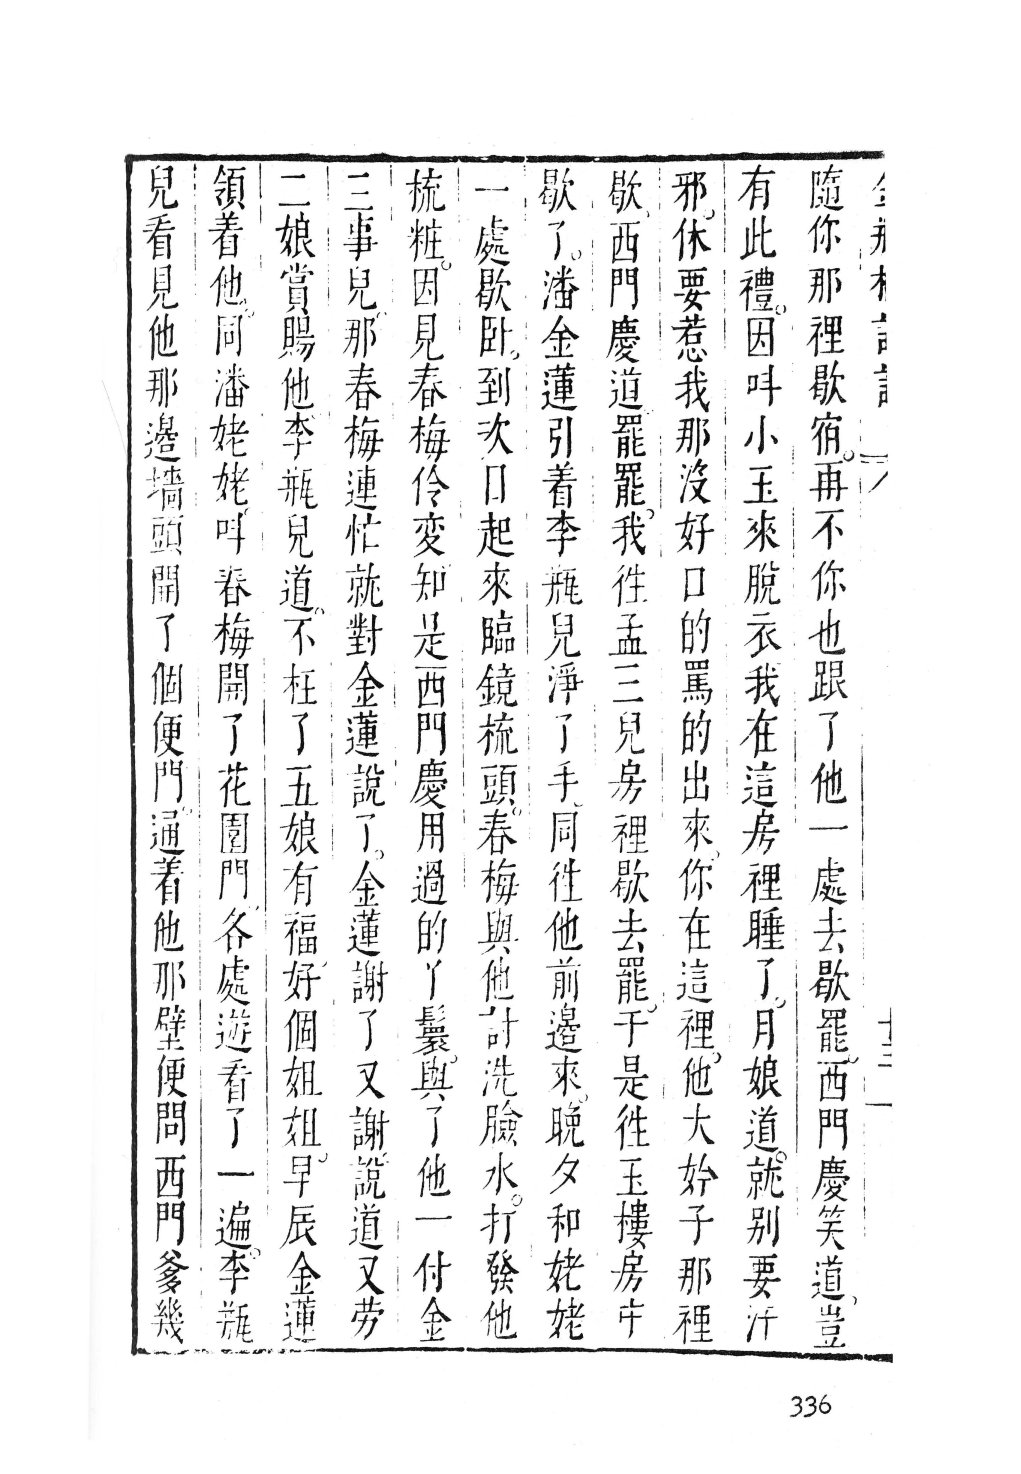 金瓶梅詞話
隨你那裡歇宿。再不你也跟了他一處去歇罷。西門慶笑道、豈
有此禮。因呌小玉來脫衣我在這房裡睡了。月娘道。就別要汗
邪。休要惹我那沒好口的罵的出來、你在這裡。他大妗子那裡
歇、西門慶道罷罷。我徃孟三兒房裡歇去罷。于是徃玉樓房中
歇了。潘金蓮引着李瓶兒淨了手、同徃他前邊來、晚夕和姥姥
一處歇臥。到次日起來臨鏡梳頭。春梅與他討洗臉水。打發他
梳粧。因見春梅伶変知是西門慶用過的丫鬟。與了他一付金
三事兒。那春梅連忙就對金蓮說了。金蓮謝了又謝、說道又劳
二娘賞賜他、李瓶兒道。不枉了五娘有福、好個姐姐。早辰金蓮
領着他、同潘姥姥、呌春梅開了花園門、各處遊看了一遍。李瓶
兒看見他那邊墻頭開了個便門。通着他那壁便問西門爹幾
336